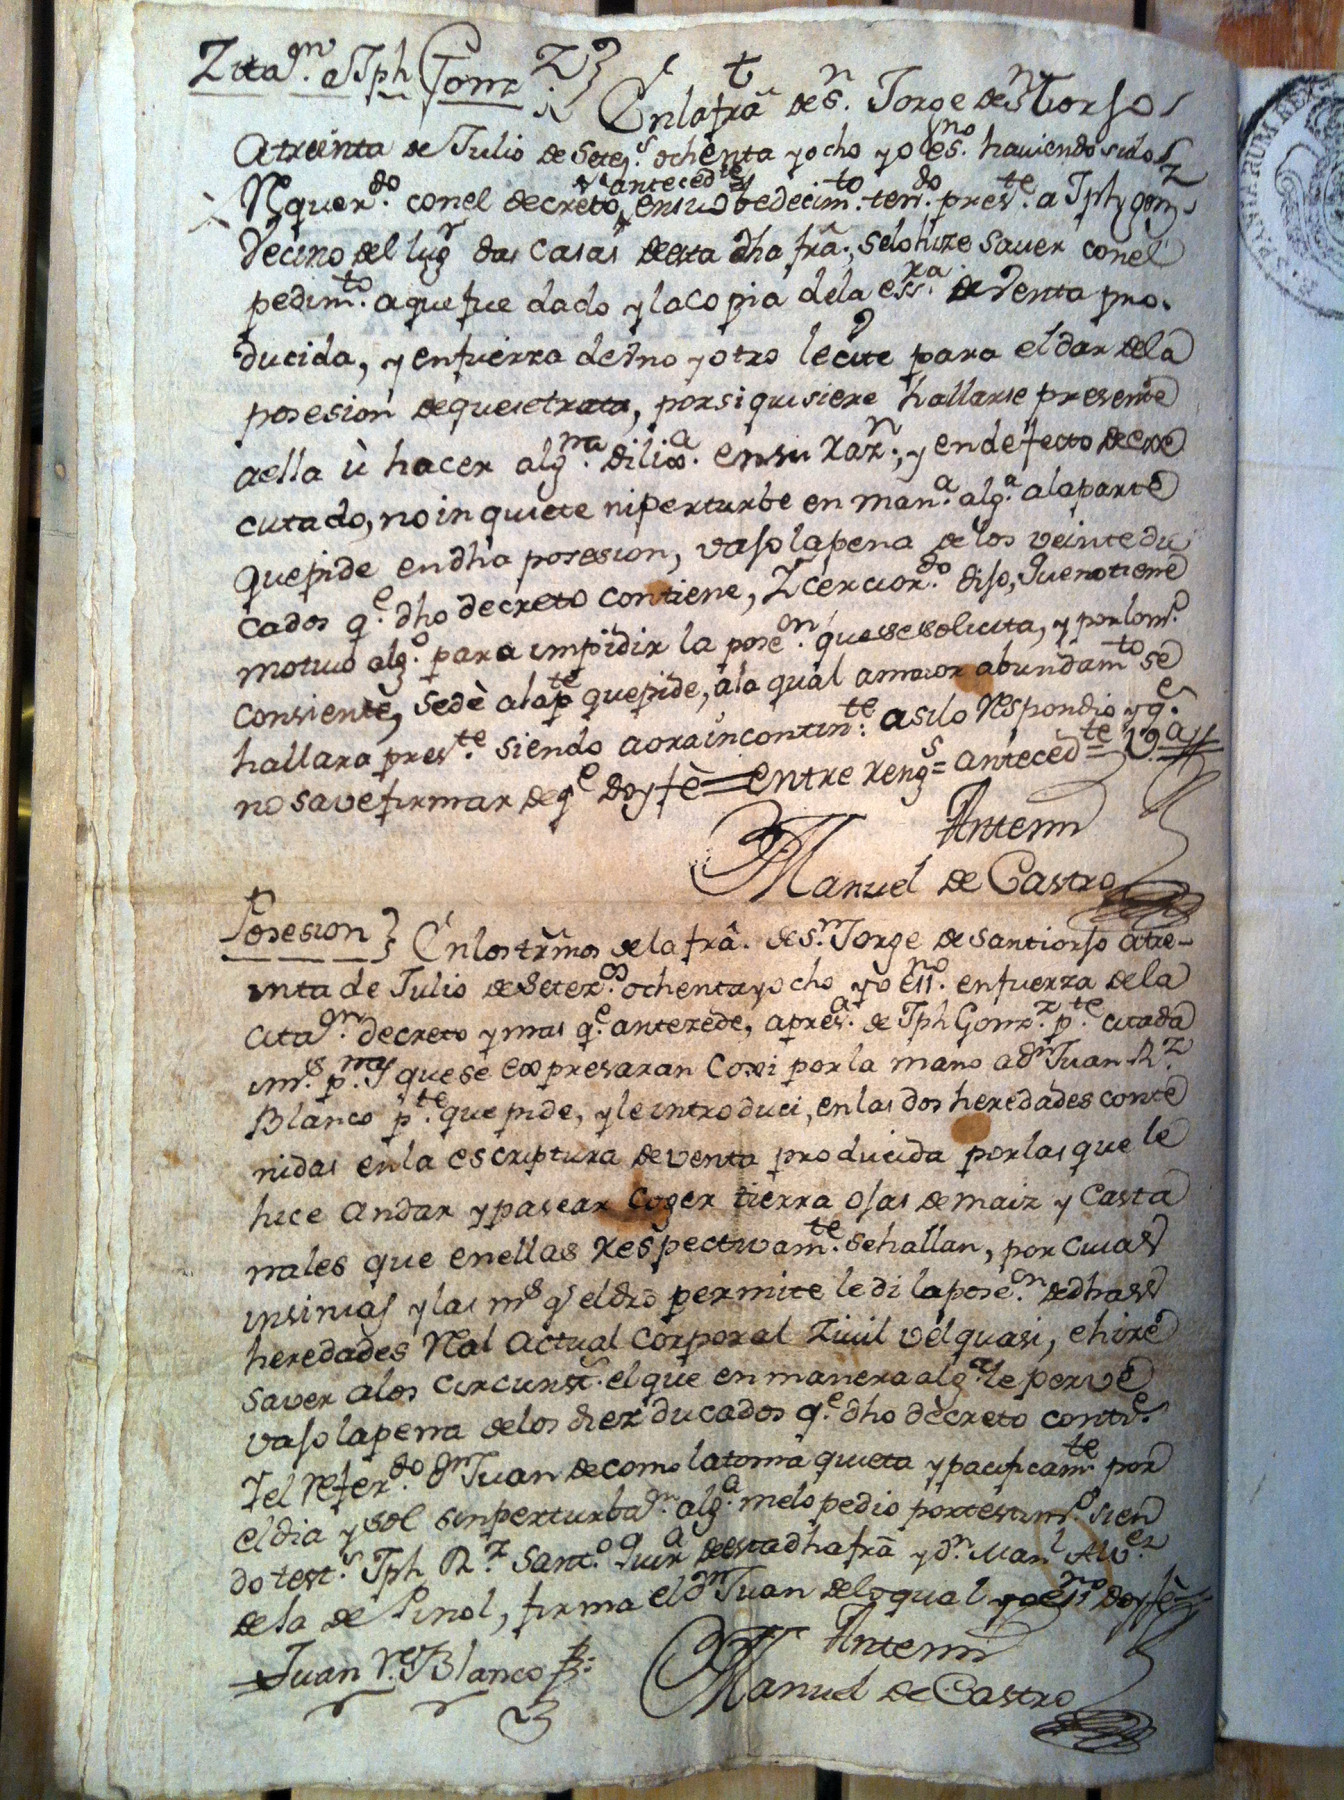 Zitaon. a Jph Gomz
t
En la fra de Sn. Jorge de Sntiorso
a treinta de Julio de Setes. ochenta y ocho yo esno. haviendo sido
Requerdo. con el decreto antecedte en su obedecimto. tendo. preste. a Jph Gomz
Vecino del lugr das Casas desta dha fra., se lo hize saver con el
pedimto. a que fue dado y la Copia dela essra. de Venta pro-
ducida, y en fuerza de Vno y otro le cite para el dar dela
posesion de que se trata, por si quisiere hallarse presente
a ella ù hacer algma. dilixa. en su Razn., y en defecto de exe
cutado, no inquiete ni perturbe en mana. alga. a la parte
que pide en dha posesion, vajo la pena de los veinte du
cados qe. dho decreto contiene, Zerciordo. dijo, que no tiene
motivo algo. para impidir la poseon. que se solicita, y por lo mo.
consiente, se dè a la pte que pide, a la qual a maior abundamto se
hallara preste. siendo aora incontinte: asi lo Respondio y qe.
no save firmar de qe doy fè = entre rengs = antecedte = Va
Antemi
Manuel de Castro
Posesion
En los trmos de la fra. de Sn. Jorge de Santiorso a tre-
inta de Julio de Setezos. ochenta y ocho yo essno. en fuerza de la
citaon. decreto y mas qe. antezede, a presa. de Jph Gomz. pte. citada
que se expresaran Coxi por la mano a Dn Juan Rz.
Blanco pte. que pide, y le introduci, en las dos heredades conte
nidas en la escriptura de venta producida por las que le
hice andar y pasear Coger tierra ojas de maiz y Casta
nales que en ellas Respectivamte. se hallan, por cuias
insinias y las ms qe el dro permite le di la poseon. de dhas
heredades Real Actual Corporal Zivil vel quasi, e hice
saver a los circunsts. el que en manera alga. le perve
vajo la pena de los diez ducados qe. dho decreto contie.
Y el Referdo. Dn Juan de como la toma quieta y pacificamte. por
el dia y sol sin perturbaon. alga. me lo pedio por testimo. sien
do tests. Jph Rz. Santo. desta dha fra y Dn. Manl Alvez
de la de Pinol, firma el Dn Juan de lo qual yo essno doy fè =
Juan Re. Blanco
Antemi
Manuel de Castro